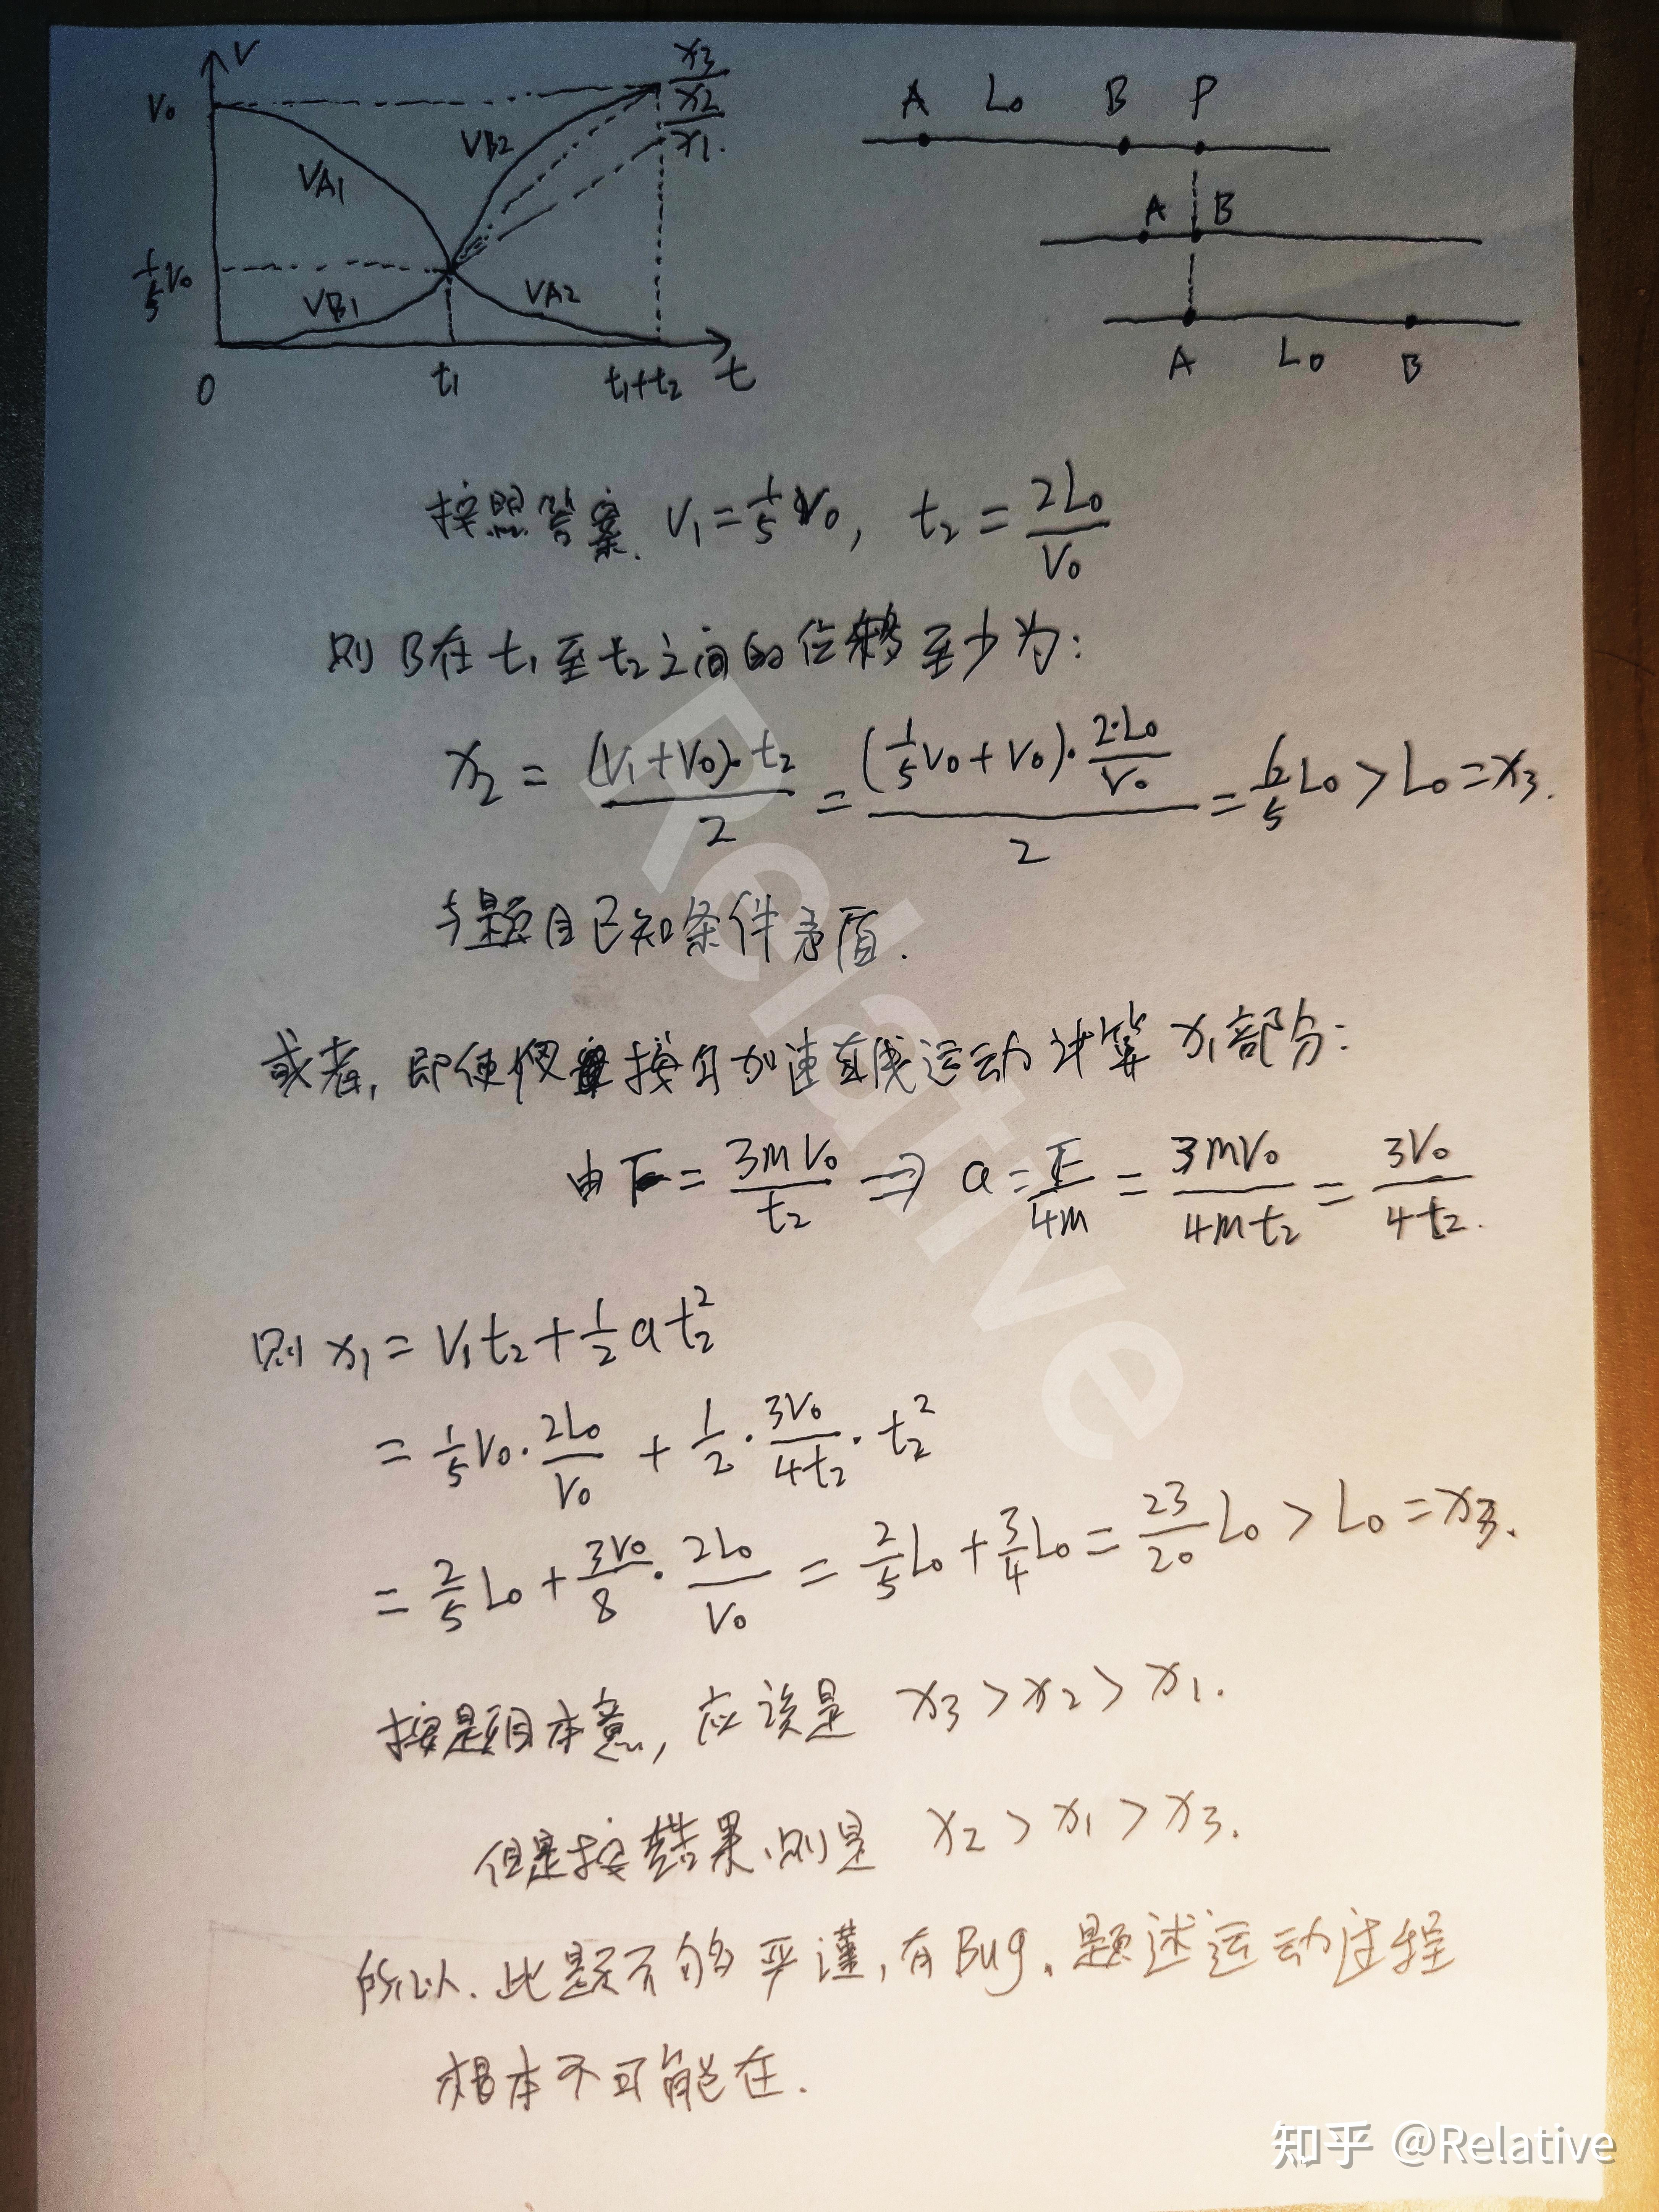 V
V₀
VA₁
VB₂
x₃
x₂
x₁.
1/5 V₀
VB₁
VA₂
0
t₁
t₁+t₂
t
A L₀ B P
A B
A L₀ B
按照答案. V₁=1/5 V₀, t₂=2L₀/V₀
则B在t₁至t₂之间的位移至少为:
x₂=(V₁+V₀)·t₂/2=(1/5V₀+V₀)·2·L₀/V₀/2=6/5L₀>L₀=x₃.
与题目已知条件矛盾.
或者,即使按匀加速直线运动计算x₁部分:
由F=3mV₀/t₂⇒a=F/4m=3mV₀/4mt₂=3V₀/4t₂.
则x₁=V₁t₂+1/2at₂²
=1/5V₀·2L₀/V₀+1/2·3V₀/4t₂·t₂²
=2/5L₀+3V₀/8·2L₀/V₀=2/5L₀+3/4L₀=23/20L₀>L₀=x₃.
按题目本意,应该是 x₃>x₂>x₁.
但是按结果,则是 x₂>x₁>x₃.
所以.此题不够严谨,有Bug.题述运动过程
根本不可能在.
Relative
知乎 @Relative